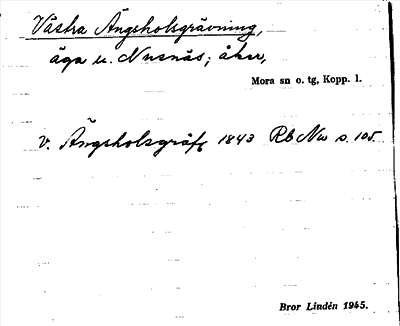 Västra Ängsholsgrävning,
äga u. Nusnäs; åker,
Mora sn o. tg, Kopp. l.
v. Ängsholsgräfg 1843 Rb Nw s. 105
Bror Lindén 1945.